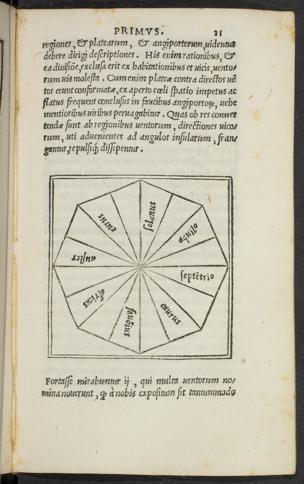 PRIMVS. 21
regiones, & platearum, & angiportorum, uidentur
debere dirigi descriptiones. His enim rationibus, &
ea diuisiõe, exclusa erit ex habitationibus et uicis, uento
rum uis molesta. Cum enim plateæ contra directos uẽ
tos erunt conformatæ, ex aperto cœli spatio impetus ac
flatus frequens conclusus in faucibus angiportorũ, uehe
mentioribus uiribus peruagabitur. Quas ob res conuer
tendæ sunt ab regionibus uentorum, directiones uico
rum, uti aduenientes ad angulos insularum, fran
gantur, repulsiq; dissipentur.
solanus
eurus
aquilo
auster
septẽtrio
africus
fauonius
caurus
Fortasse mirabuntur ij, qui multa uentorum no
mina nouerunt, ꝙ à nobis expositum sit tantummodo